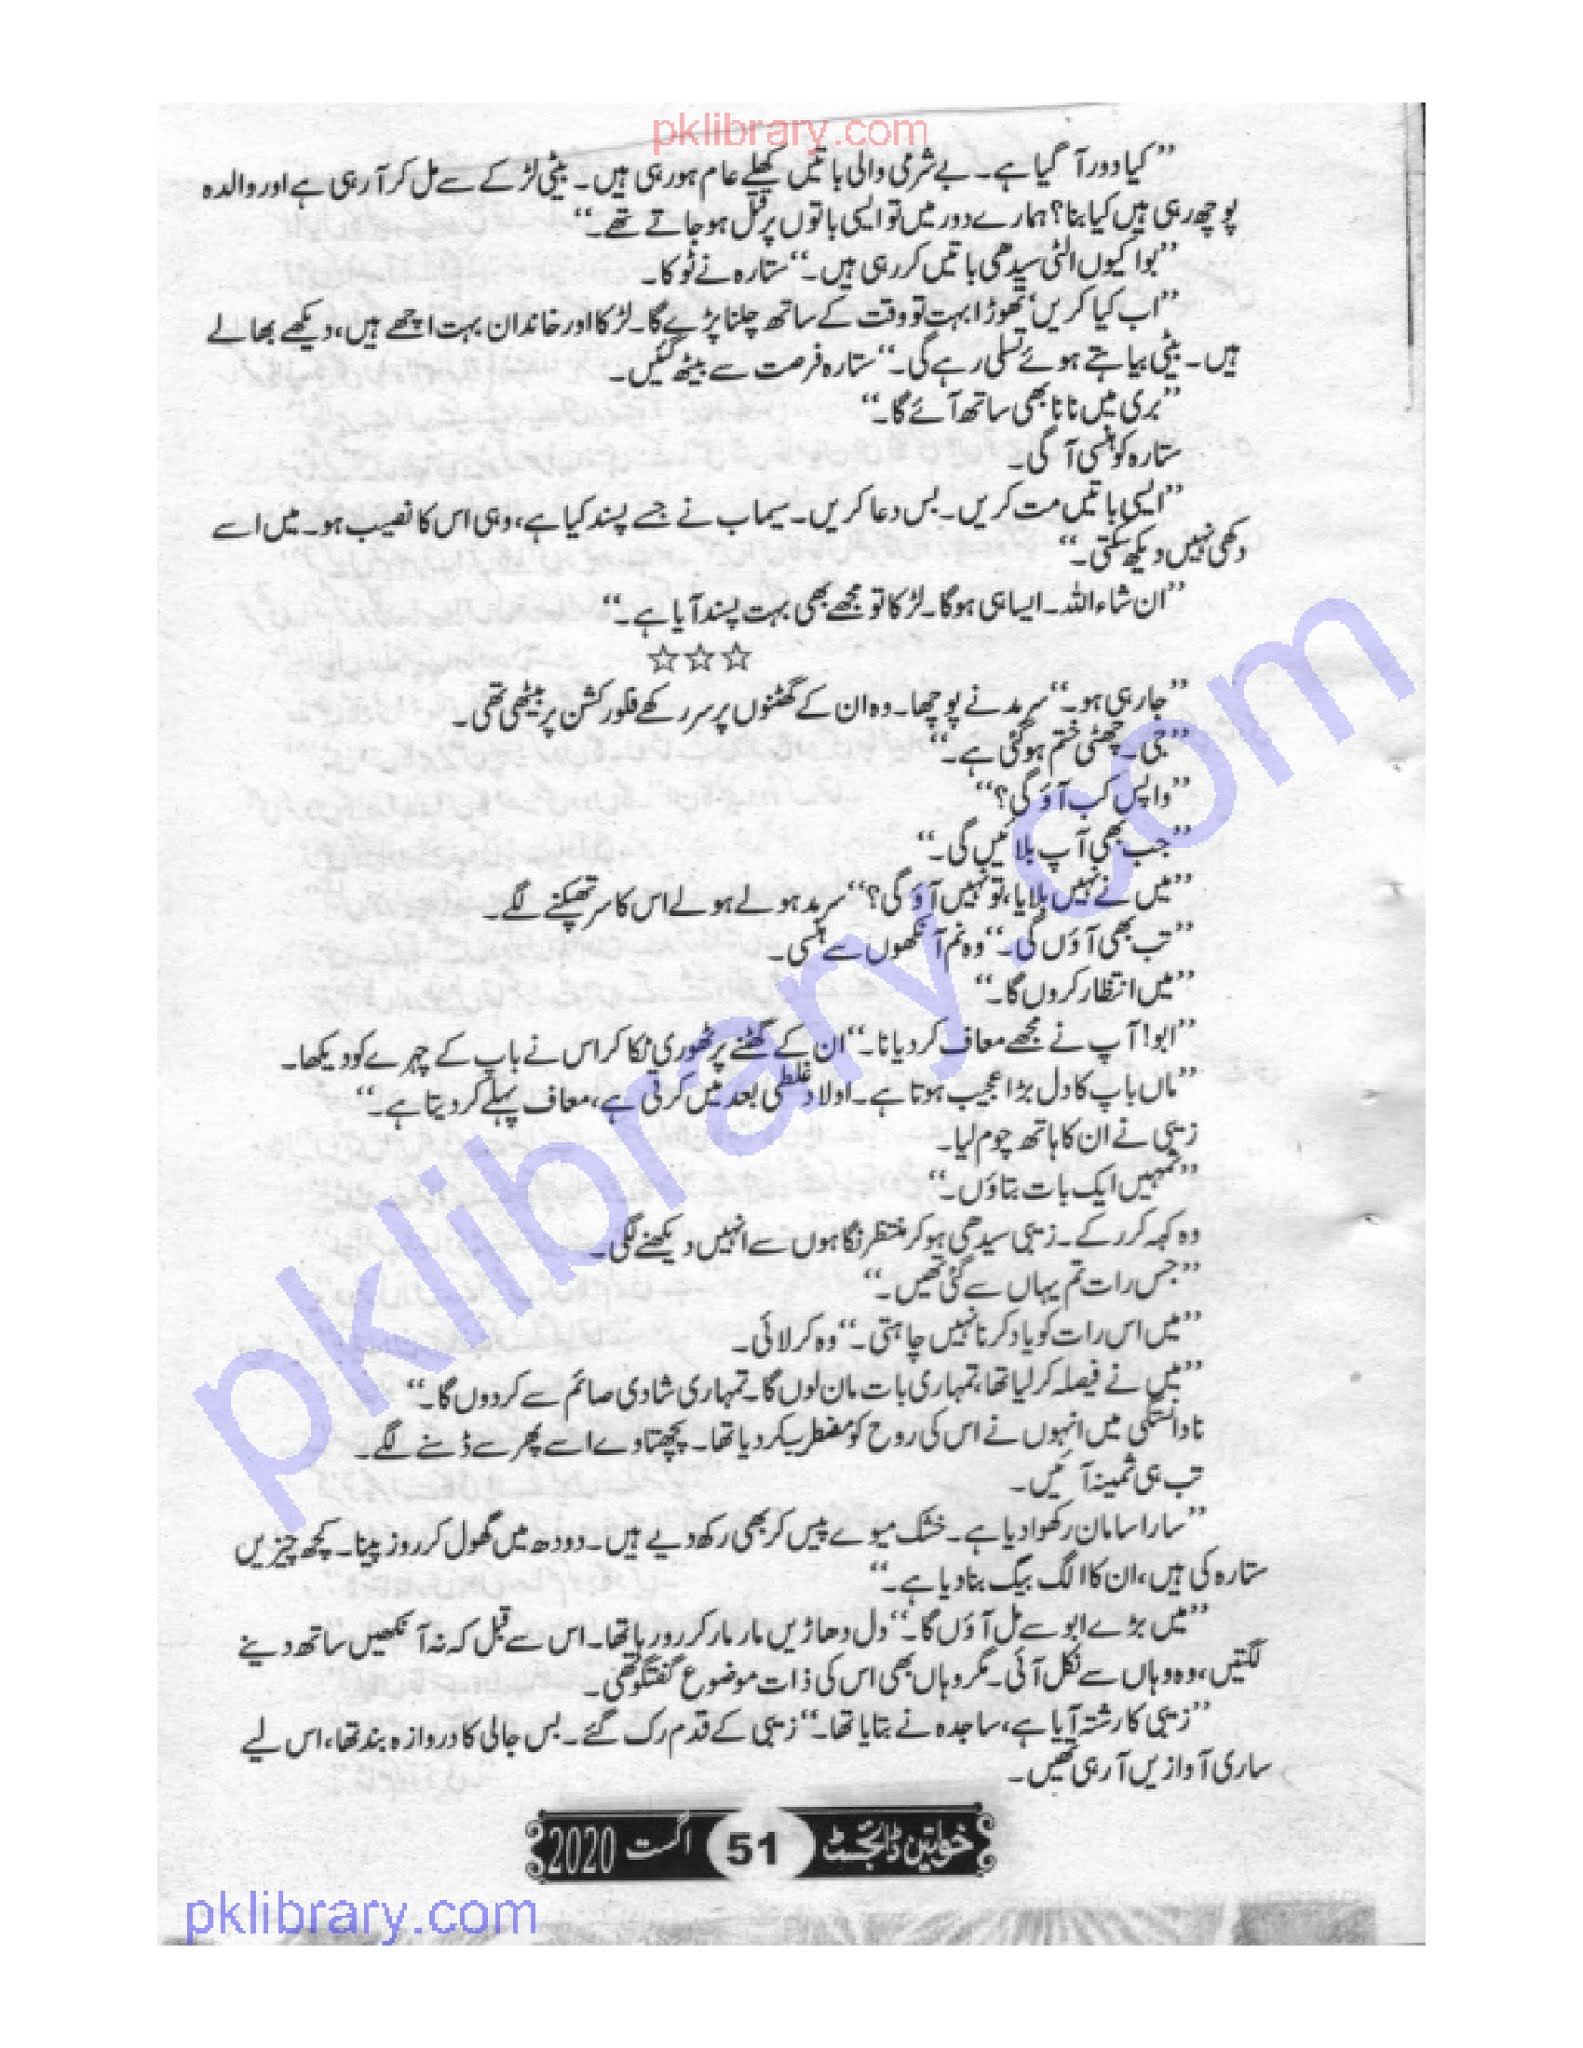 pklibrary.com
”کیا دور آ گیا ہے۔ بے شرمی والی باتیں کھلے عام ہو رہی ہیں۔ بیٹی لڑکے سے مل کر آ رہی ہے اور والدہ
پوچھ رہی ہیں کیا بنا؟ ہمارے دور میں تو ایسی باتوں پر قتل ہو جاتے تھے۔“
”بوا کیوں الٹی سیدھی باتیں کر رہی ہیں۔“ ستارہ نے ٹوکا۔
”اب کیا کریں‘ تھوڑا بہت تو وقت کے ساتھ چلنا پڑے گا۔ لڑکا اور خاندان بہت اچھے ہیں، دیکھے بھالے
ہیں۔ بیٹی بیاہتے ہوئے تسلی رہے گی۔“ ستارہ فرصت سے بیٹھ گئیں۔
”بری میں نانا بھی ساتھ آئے گا۔“
ستارہ کو ہنسی آ گی۔
”ایسی باتیں مت کریں۔ بس دعا کریں۔ سیماب نے جسے پسند کیا ہے، وہی اس کا نصیب ہو۔ میں اسے
دکھی نہیں دیکھ سکتی۔“
”ان شاء اللہ۔ ایسا ہی ہوگا۔ لڑکا تو مجھے بھی بہت پسند آیا ہے۔“
☆☆☆
”جا رہی ہو۔“ سرمد نے پوچھا۔ وہ ان کے گھٹنوں پر سر رکھے فلور کشن پر بیٹھی تھی۔
”جی۔ چھٹی ختم ہو گئی ہے۔“
”واپس کب آؤ گی؟“
”جب بھی آپ بلائیں گی۔“
”میں نے نہیں بلایا، تو نہیں آؤ گی؟“ سرمد ہولے ہولے اس کا سر تھپکنے لگے۔
”تب بھی آؤں گی۔“ وہ نم آنکھوں سے ہنسی۔
”میں انتظار کروں گا۔“
”ابو! آپ نے مجھے معاف کر دیا نا۔“ ان کے گھٹنے پر ٹھوری ٹکا کر اس نے باپ کے چہرے کو دیکھا۔
”ماں باپ کا دل بڑا عجیب ہوتا ہے۔ اولاد غلطی بعد میں کرتی ہے، معاف پہلے کر دیتا ہے۔“
زیبی نے ان کا ہاتھ چوم لیا۔
”تمہیں ایک بات بتاؤں۔“
وہ کہہ کر رکے۔ زیبی سیدھی ہو کر منتظر نگاہوں سے انہیں دیکھنے لگی۔
”جس رات تم یہاں سے گئی تھیں۔“
”میں اس رات کو یاد کرنا نہیں چاہتی۔“ وہ کرلائی۔
”میں نے فیصلہ کر لیا تھا، تمہاری بات مان لوں گا۔ تمہاری شادی صائم سے کر دوں گا۔“
نادانستگی میں انہوں نے اس کی روح کو مضطرب کر دیا تھا۔ پچھتاوے اسے پھر سے ڈسنے لگے۔
تب ہی ثمینہ آئیں۔
”سارا سامان رکھوا دیا ہے۔ خشک میوے پیس کر بھی رکھ دیے ہیں۔ دودھ میں گھول کر روز پینا۔ کچھ چیزیں
ستارہ کی ہیں، ان کا الگ بیگ بنا دیا ہے۔“
”میں بڑے ابو سے مل آؤں گا۔“ دل دھاڑیں مار مار کر رو رہا تھا۔ اس سے قبل کہ نہ آنکھیں ساتھ دینے
لگتیں، وہ وہاں سے نکل آئی۔ مگر وہاں بھی اس کی ذات موضوع گفتگو تھی۔
”زیبی کا رشتہ آیا ہے، ساجدہ نے بتایا تھا۔“ زیبی کے قدم رک گئے۔ بس جالی کا دروازہ بند تھا، اس لیے
ساری آوازیں آ رہی تھیں۔
خواتین ڈائجسٹ 51 اگست 2020
pklibrary.com
pklibrary.com